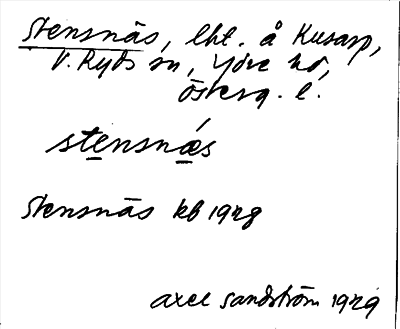 Stensnäs, lht. å Kusarp,
V. Ryds sn, Ydre hd,
Österg. l.
stensnæ´s
Stensnäs kb 1928
Axel Sandström 1929